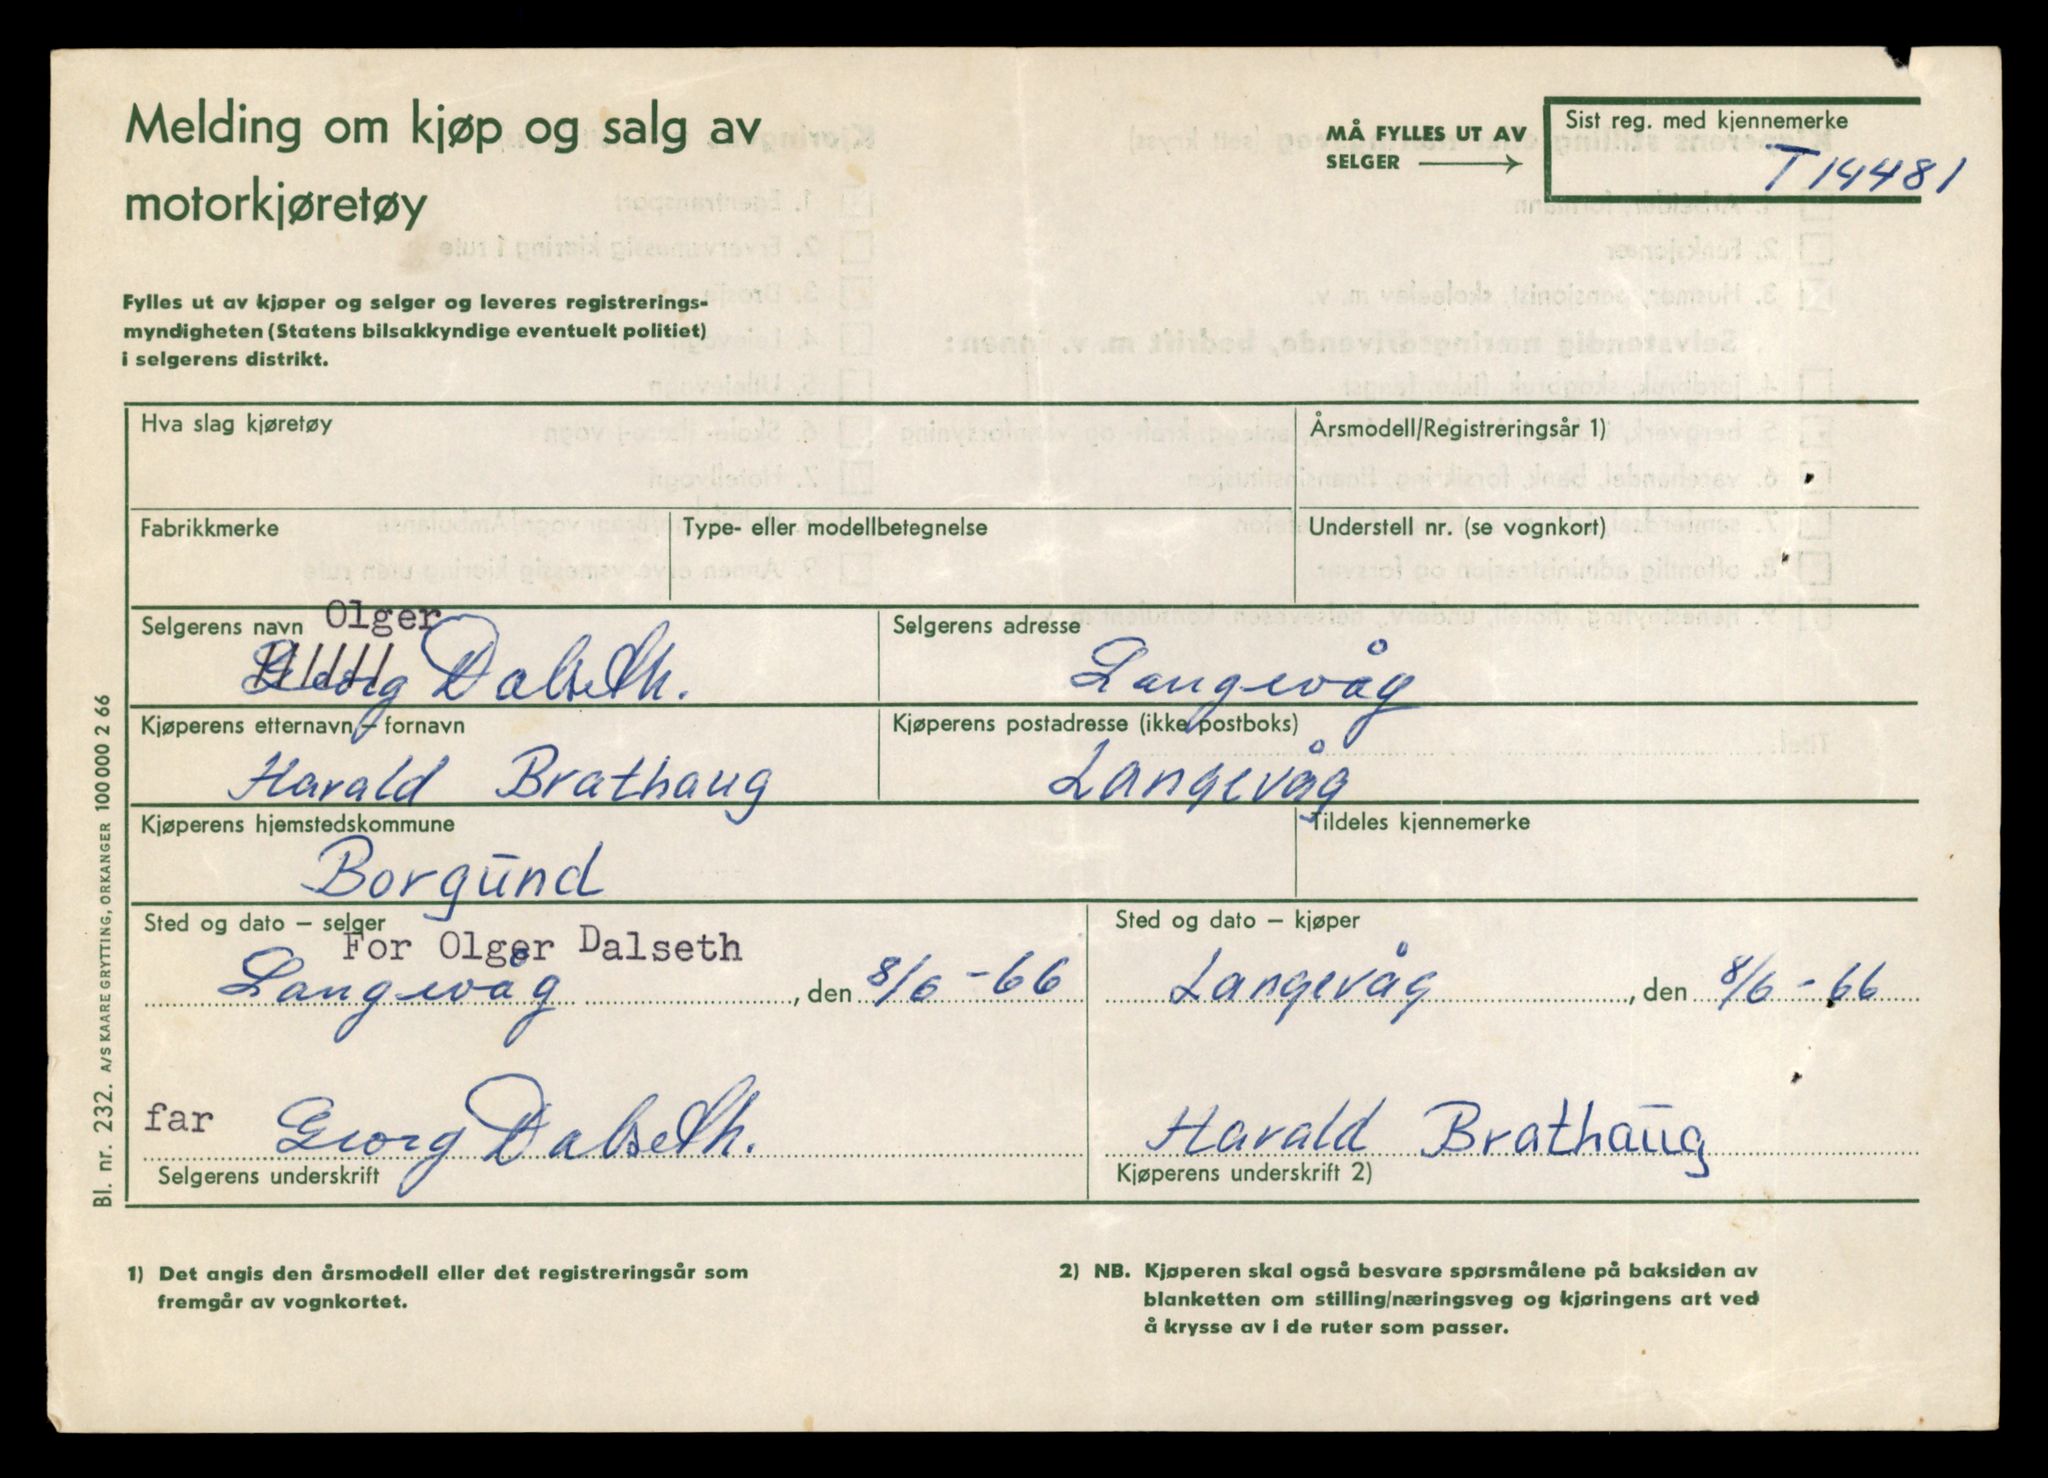 Melding om kjøp og salg av
motorkjøretøy
MÅ FYLLES UT AV
SELGER
Sist reg. med kjennemerke
T 14481
Fylles ut av kjøper og selger og leveres registrerings-
myndigheten (Statens bilsakkyndige eventuelt politiet)
i selgerens distrikt.
Hva slag kjøretøy
Årsmodell/Registreringsår 1)
Fabrikkmerke
Type- eller modellbetegnelse
Understell nr. (se vognkort)
Selgerens navn
Olger
Georg Dalseth.
Selgerens adresse
Langevåg
Kjøperens etternavn – fornavn
Harald Brathaug
Kjøperens postadresse (ikke postboks)
Langevåg
Kjøperens hjemstedskommune
Borgund
Tildeles kjennemerke
Sted og dato – selger
For Olger Dalseth
Langevåg, den 8/6 - 66
Sted og dato – kjøper
Langevåg, den 8/6 - 66
far Georg Dalseth.
Selgerens underskrift
Harald Brathaug
Kjøperens underskrift 2)
1) Det angis den årsmodell eller det registreringsår som
fremgår av vognkortet.
2) NB. Kjøperen skal også besvare spørsmålene på baksiden av
blanketten om stilling/næringsveg og kjøringens art ved
å krysse av i de ruter som passer.
Bl. nr. 232. A/S KAARE GRYTTING, ORKANGER 100 000 2 66